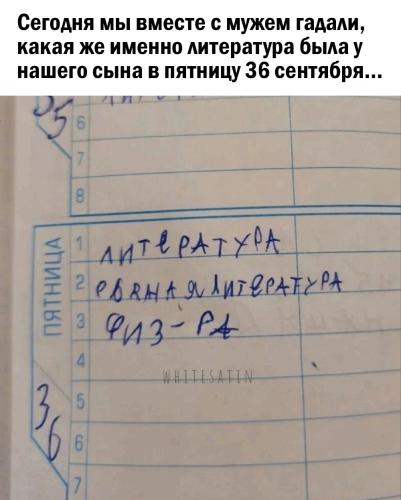 Сегодня мы вместе с мужем гадали,
какая же именно литература была у
нашего сына в пятницу 36 сентября...
5
6
7
8
ПЯТНИЦА
1 ЛИТЕРАТУРА
2 РВЯНАЯ ЛИТЕРАТУРА
3 ФИЗ-РА
4
WHITESATIN
36
5
6
7